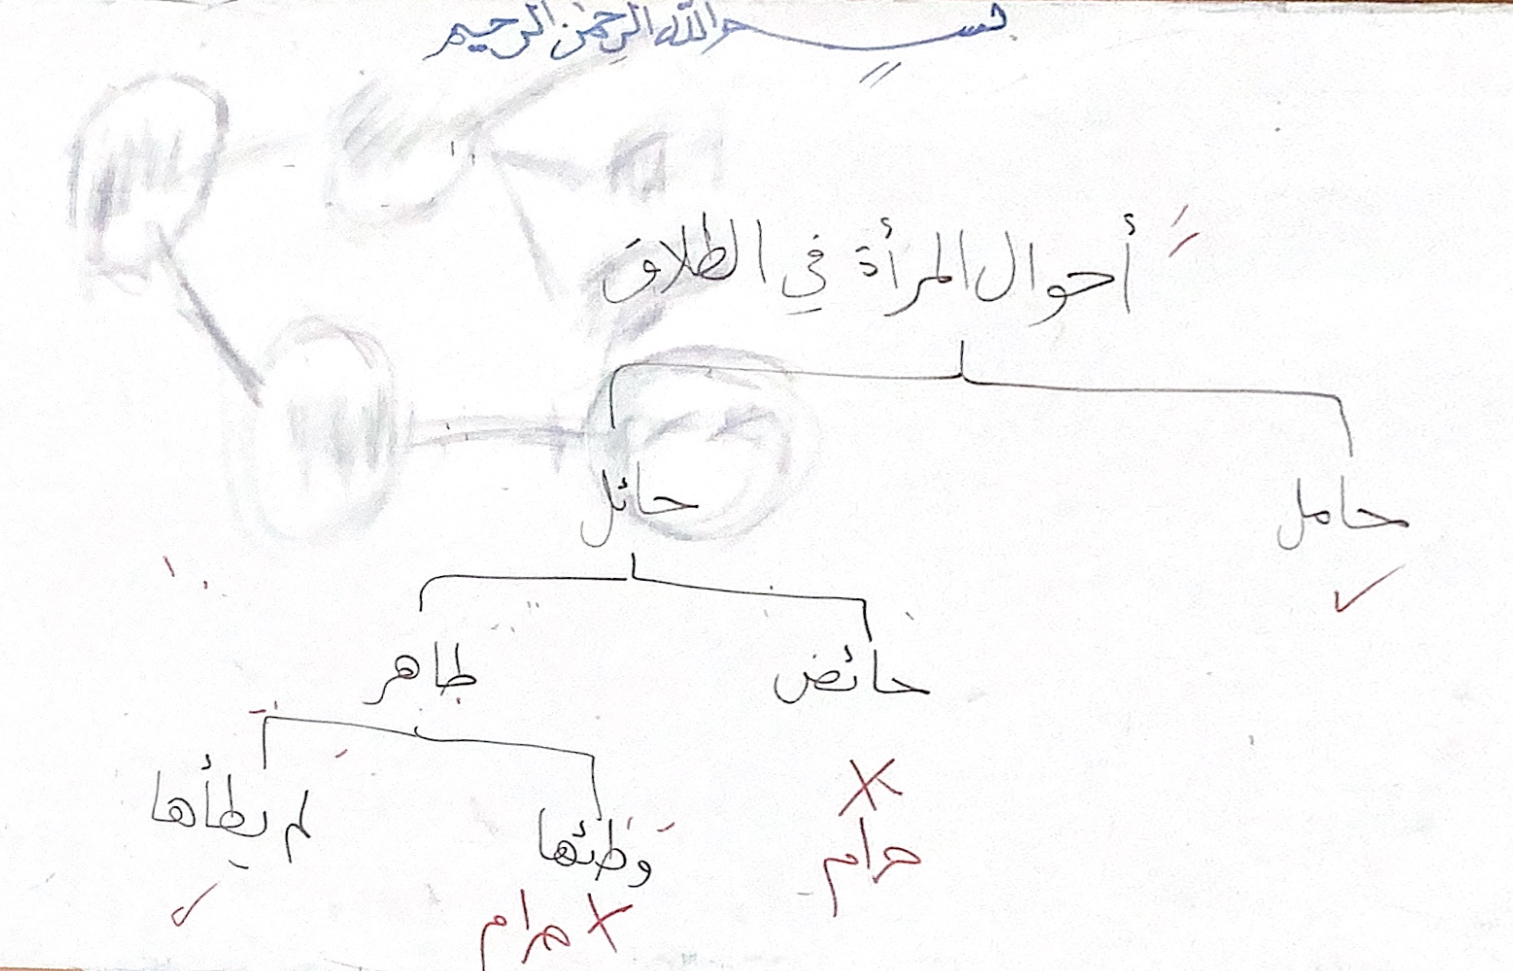 بسم الله الرحمن الرحيم
أحوال المرأة في الطلاق
حامل
✓
حائل
حائض
X
حرام
طاهر
وطئها
X حرام
لم يطأها
✓